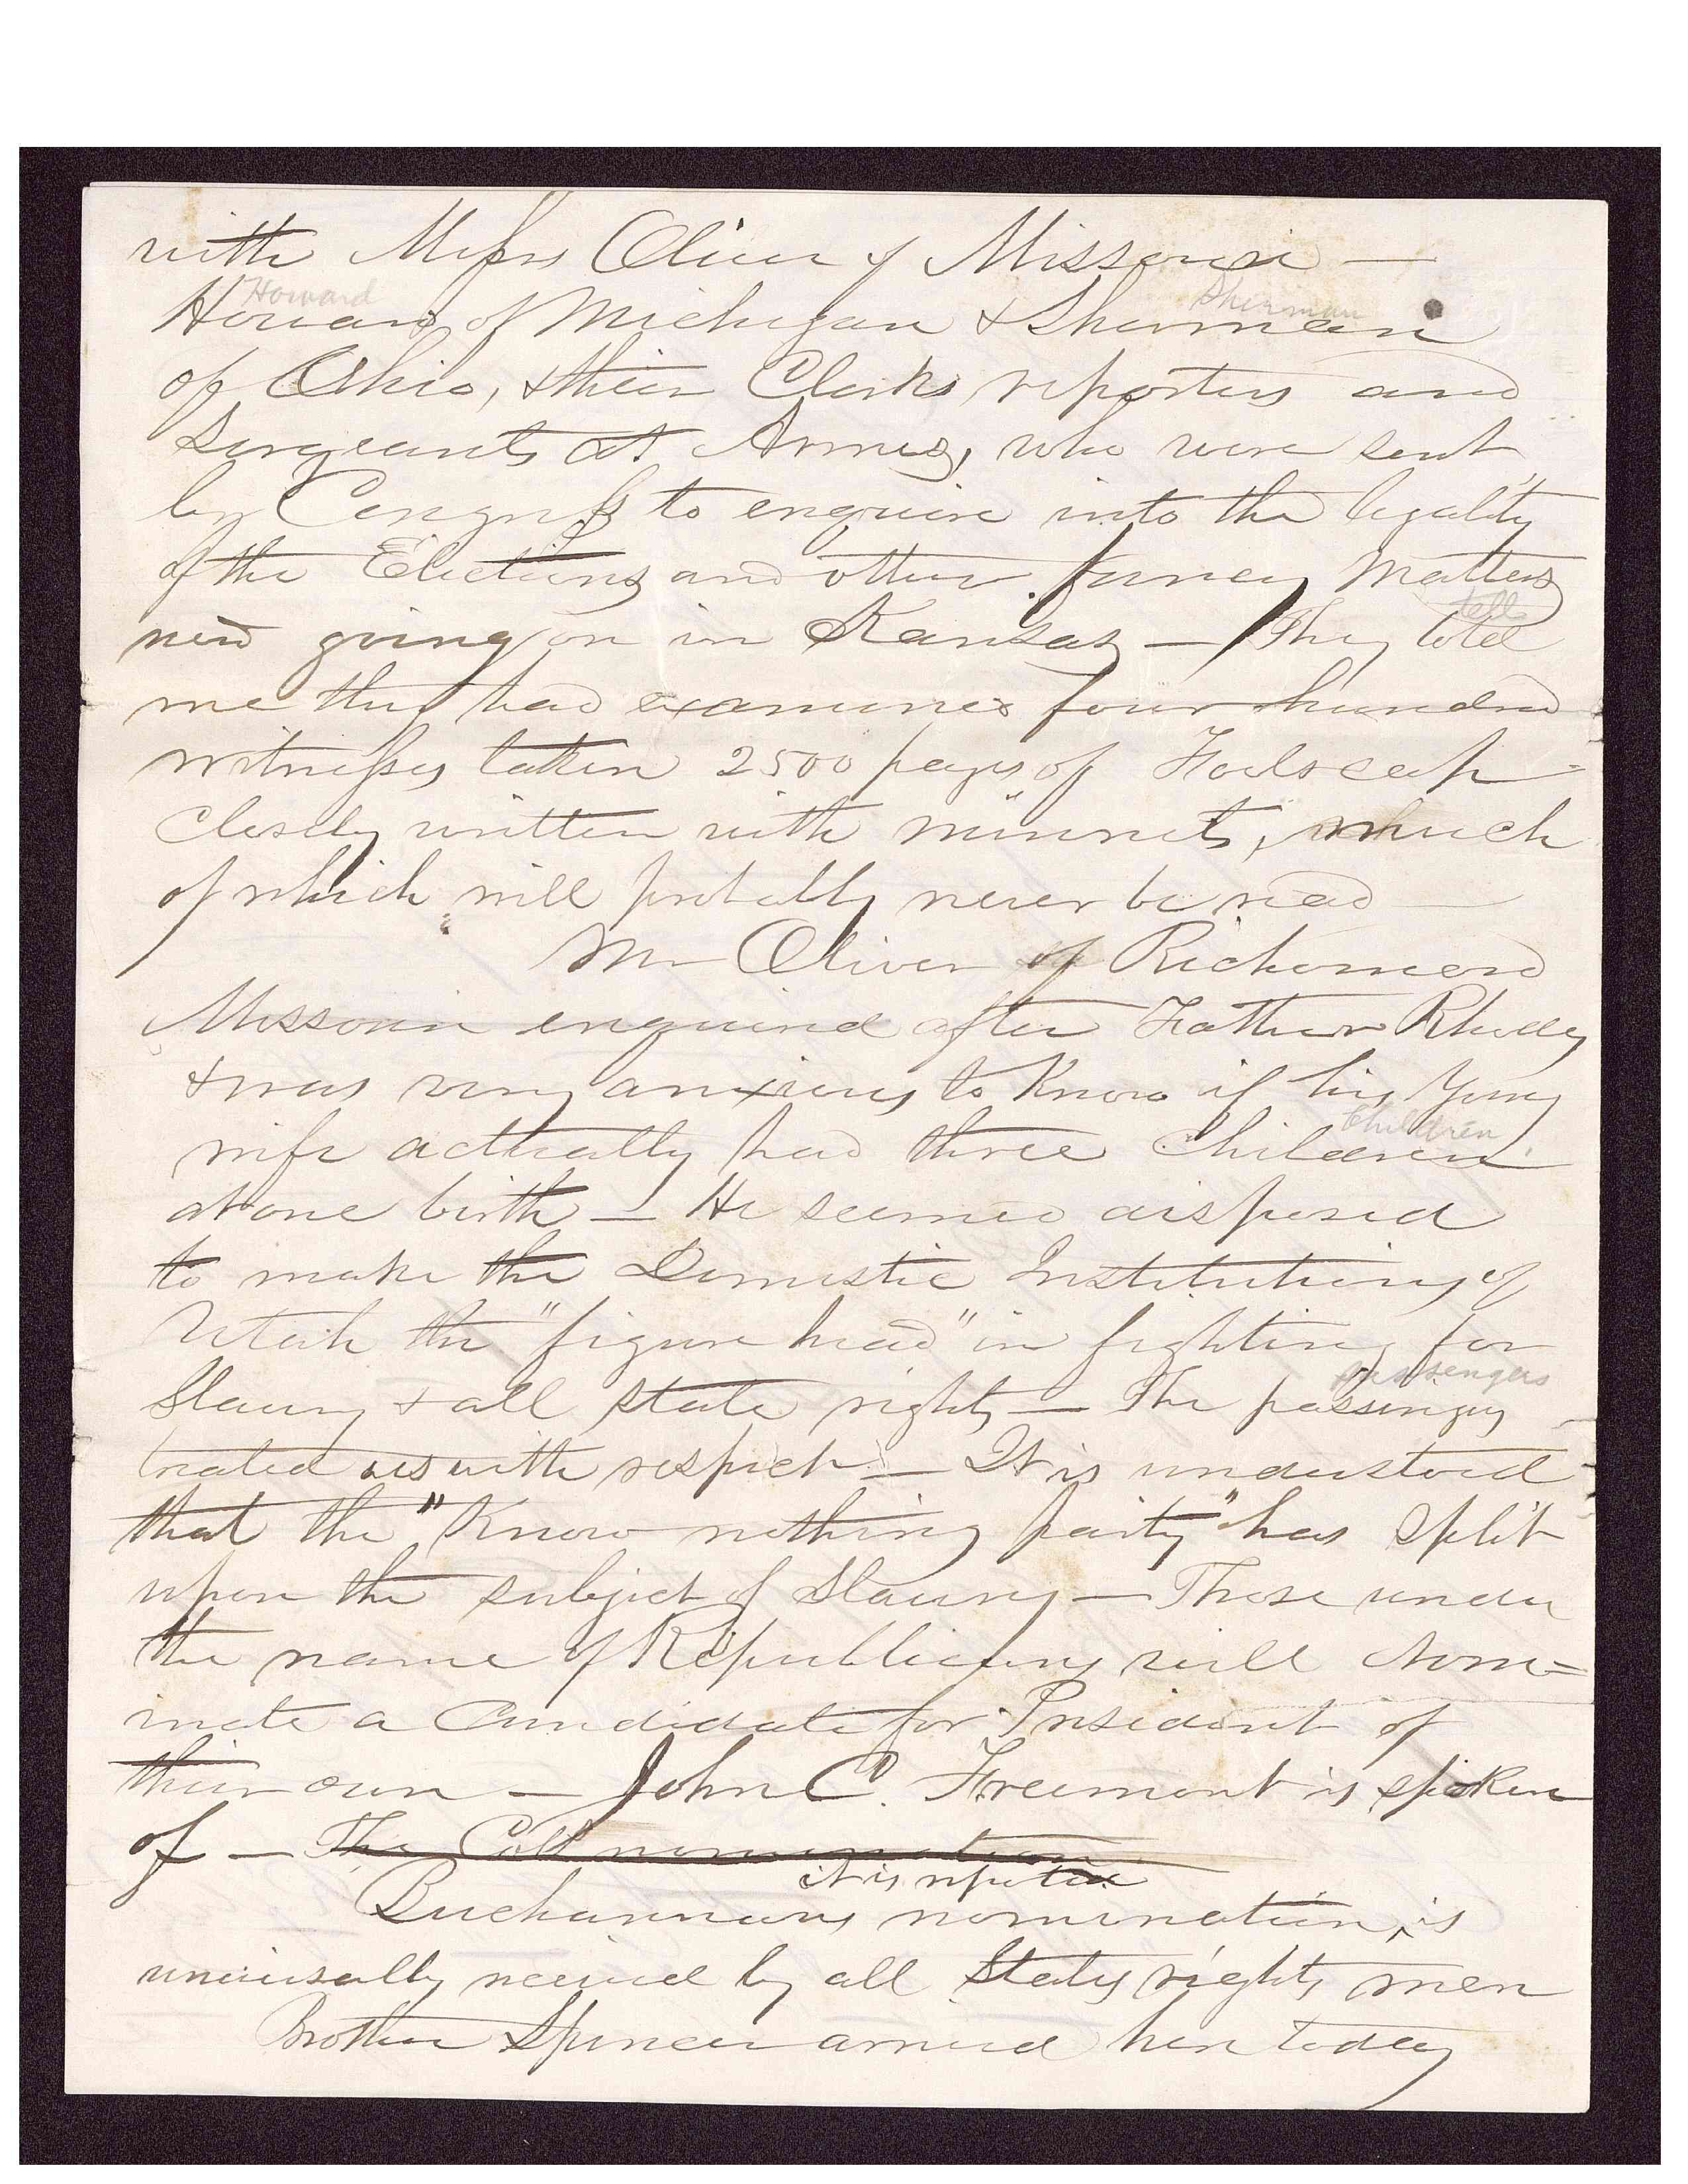 with Messrs Oliver of Missouri —
Howard Sherman
Howard of Michigan & Sherman
of Ohio, & their Clerks reporters and
Sergeants at Armes, who were sent
by Congress to enquire into the legality
of the Elections and other funny matters
tell
now going on in Kansas — They told
me they had examined four hundred
witnesses taken 2500 pages of Foolscap
Closely written with minuets, much
of which will probably never be read —
Mr Oliver of Richmond
Missouri enquired after Father Rhody
& was very anxious to Know if his Young
Children
wife actually had three Children
at one birth — He seemed disposed
to make the Domestic Institutions of
Utah the "figure head" in fighting for
passengers
Slavery & all State rights — The passengers
treated us with respect — It is understood
that the "Know nothing party" has split
upon the subject of Slavery — Those under
the name of Republicans will nom=
inate a Candidate for President of
their own — John C. Freemont is spoken
of — The Call nomination
it is reputed
Buchannans nomination, is
universally received by all States rights men
Brother Spencer arrived here today